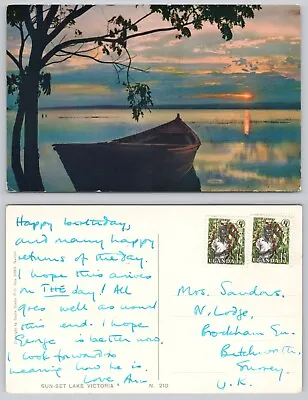 Happy birthday,
and many happy
returns of the day.
I hope this arrives
on THE day! All
goes well as usual
this end. I hope
George is better now.
I look forward to
hearing how he is.
Love, Ann
SUN-SET LAKE VICTORIA
N. 210
UGANDA
UGANDA
Mrs. Sanders,
N. Lodge,
Brockham Gn.
Betchworth,
Surrey.
U.K.